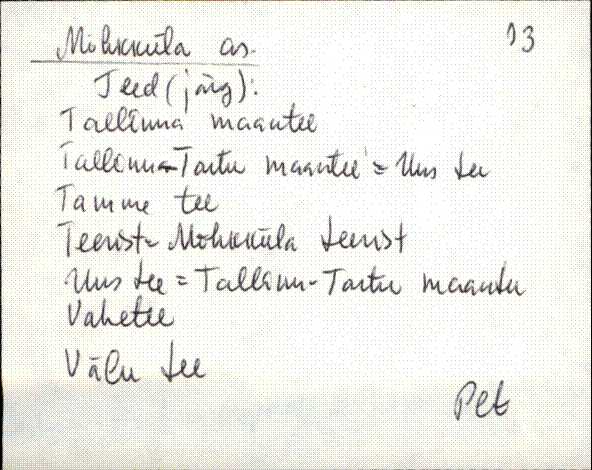 Mõhkküla as. 13
Teed (järg):
Tallinna maantee
Tallinna-Tartu maantee = Uus tee
Tamme tee
Teerist = Mõhkküla teerist
Uus tee = Tallinn-Tartu maantee
Vahetee
Välu tee
Pet